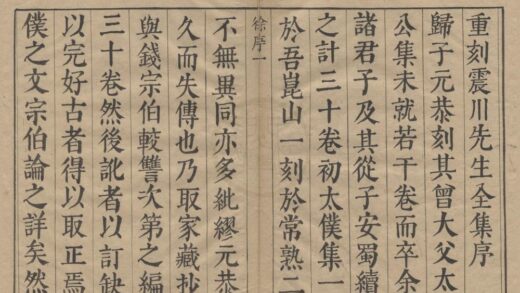 重刻震川先生全集序
歸子元恭刻其曾大父太
公集未就若干卷而卒余
諸君子及其從子安蜀續
之計三十卷初太僕集一
於吾崑山一刻於常熟二
徐序一
不無異同亦多紕繆元恭
久而失傳也乃取家藏抄
與錢宗伯較讐次第之編
三十卷然後訛者以訂缺
以完好古者得以取正焉
僕之文宗伯論之詳矣然